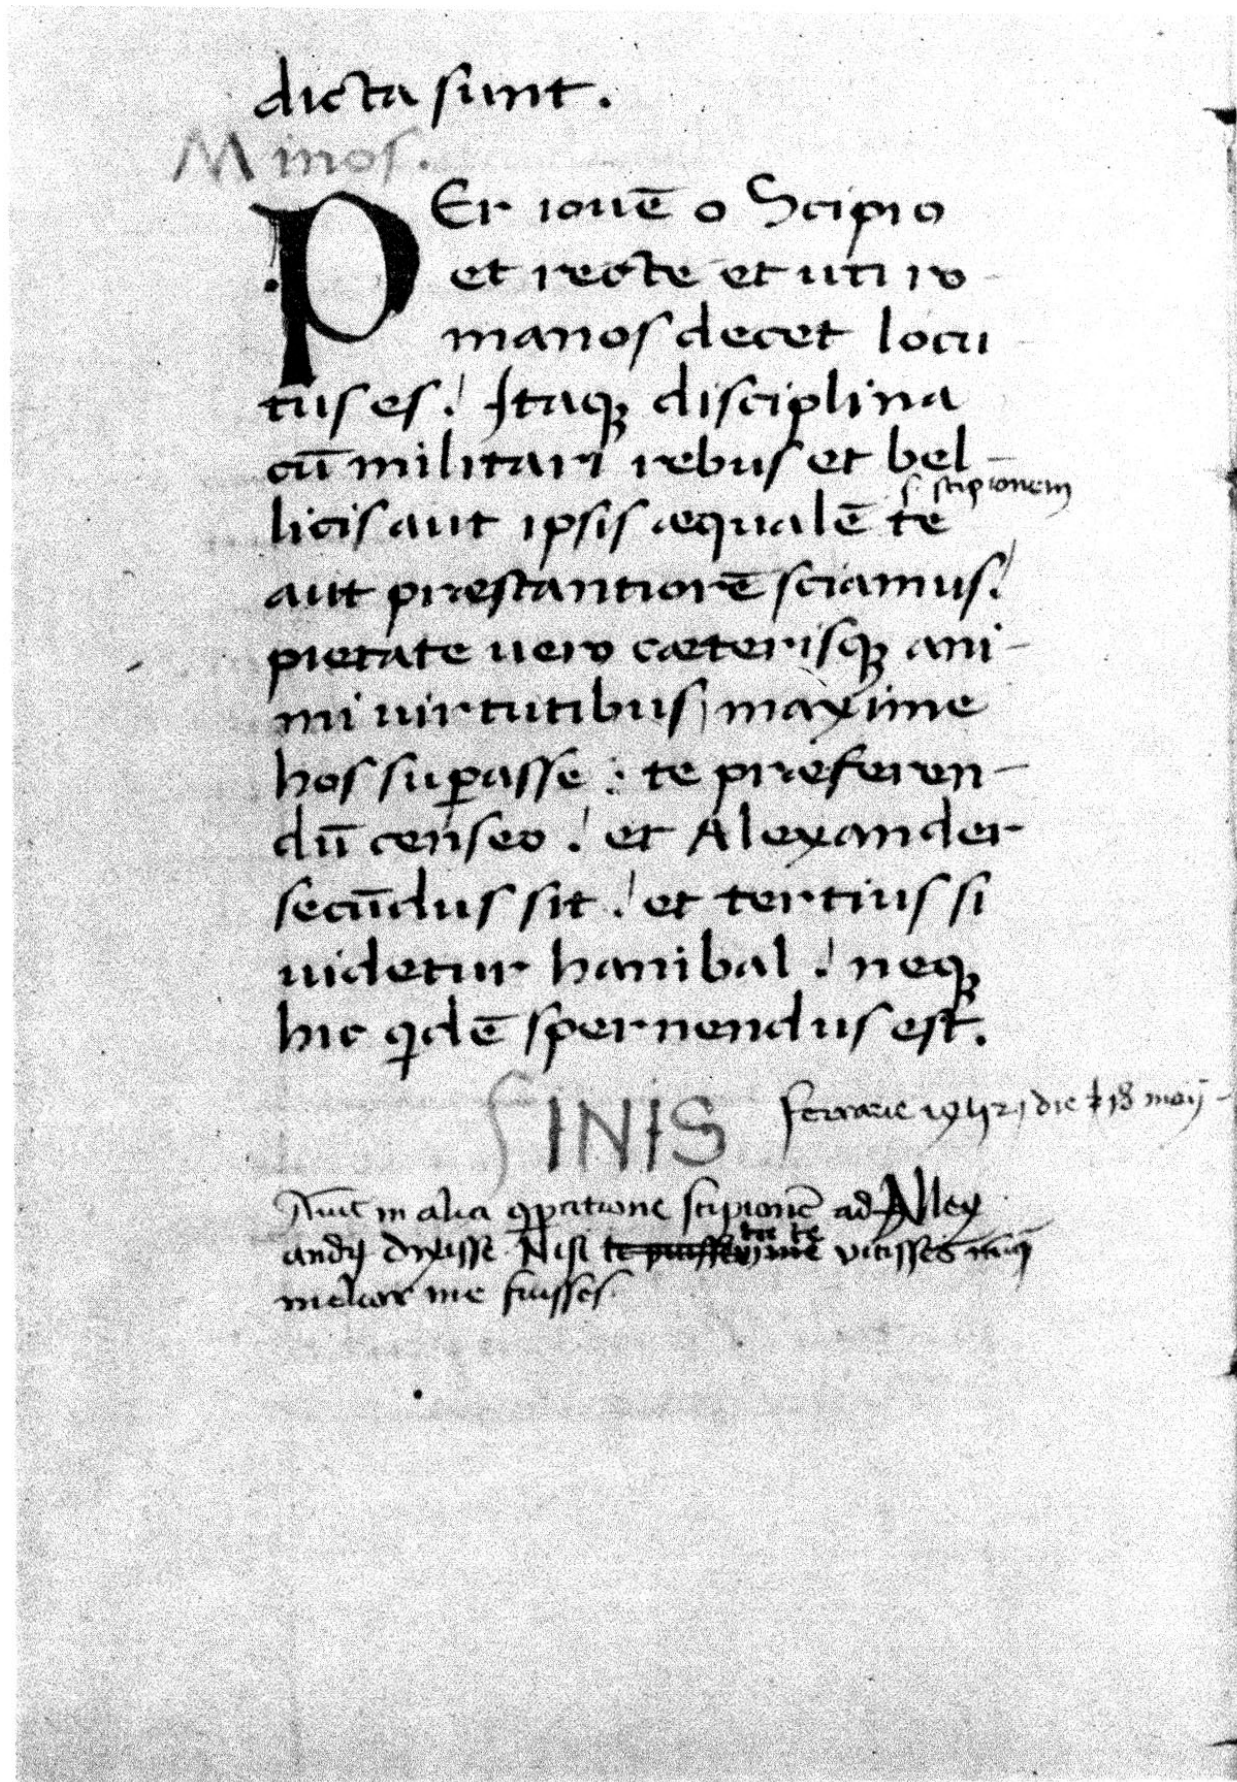 dicta sunt.
Minos.
PEr iouē o Scipio
et recte et uti ro-
manos decet locu-
tus es. Itaq; disciplina
cū militari rebus et bel-
s. scipionem
licis aut ipsis æqualē te
aut præstantiorē sciamus.
pietate uero cæterisq; ani-
mi uirtutibus maxime
hos suꝑasse : te præferen-
dū censeo. et Alexander
secūdus sit. et tertius si
uidetur hanibal. neq;
hic qdē spernendus est.
FINIS
ferrarie die 18 maij
in alia scipionē ad Alex
dixisse. Nisi tu te vicisses
melior me fuisses.